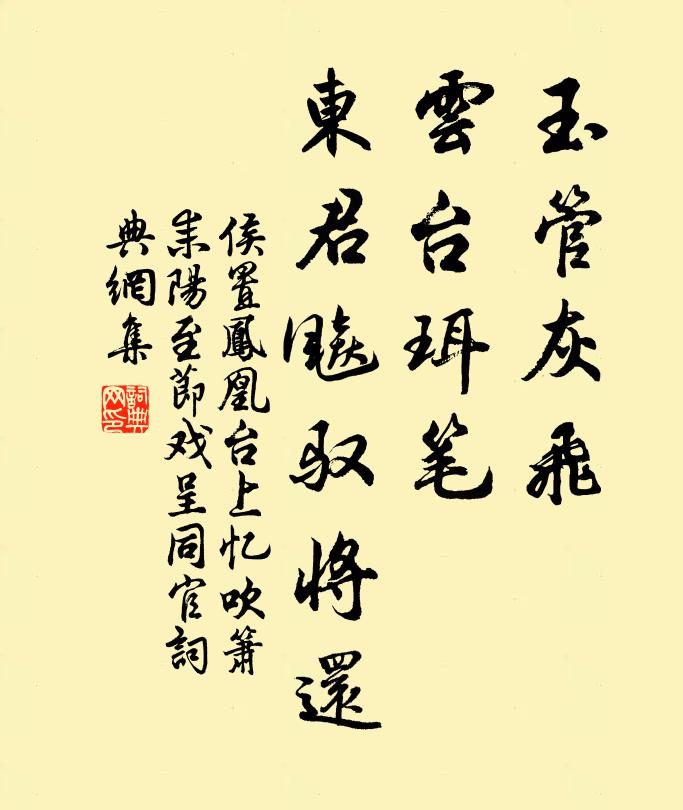 玉管灰飞
雲台珥笔
東君飚驭将還
侯置鳳凰台上忆吹箫
耒陽至節戏呈同官詞
典網集
詞典
网印